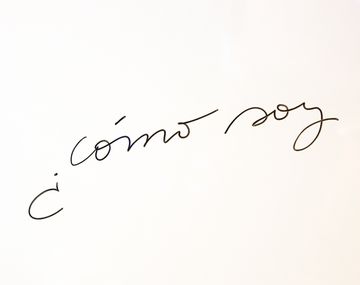 ¿cómo soy